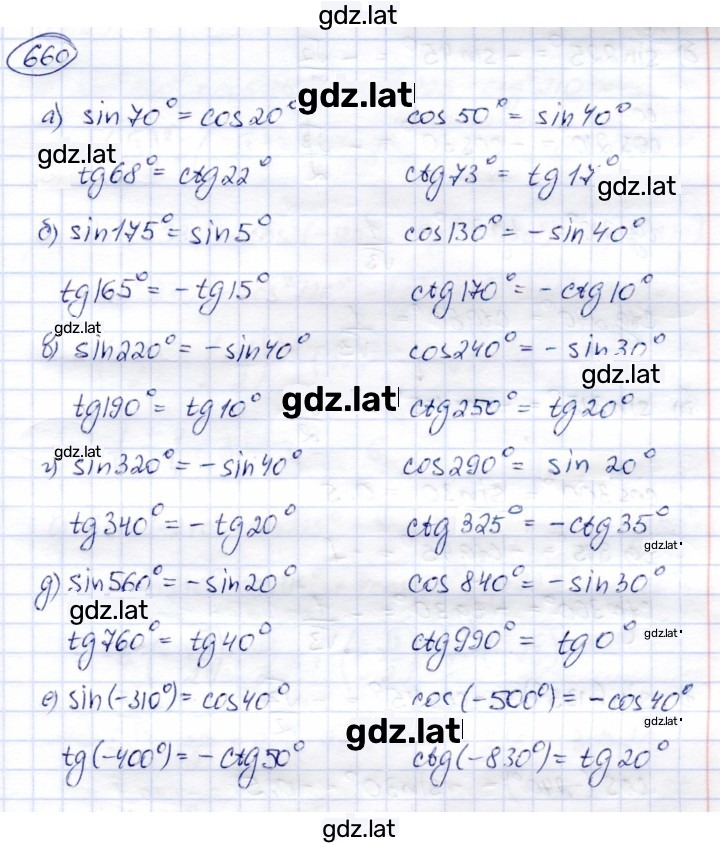 gdz.lat
660
gdz.lat
а) sin70°=cos20° cos50°= sin40°
gdz.lat
tg68°= ctg22° ctg73°= tg17°
gdz.lat
б) sin175°=sin5° cos130°=-sin40°
tg165°= -tg15° ctg170°= -ctg10°
gdz.lat
в) sin220°= -sin40° cos240°= -sin30°
gdz.lat
tg190°= tg10° gdz.lat ctg250°= tg20°
gdz.lat
г) sin320°= -sin40° cos290°= sin 20°
tg340°= -tg20° ctg 325°= -ctg35°
gdz.lat
д) sin560°= -sin20° cos 840°= -sin30°
gdz.lat
tg760°= tg40° ctg990°= tg0° gdz.lat
е) sin(-310°)=cos40° cos(-500°)= -cos40°
gdz.lat
gdz.lat
tg(-400°)= -ctg50° ctg(-830°)= tg20°
gdz.lat